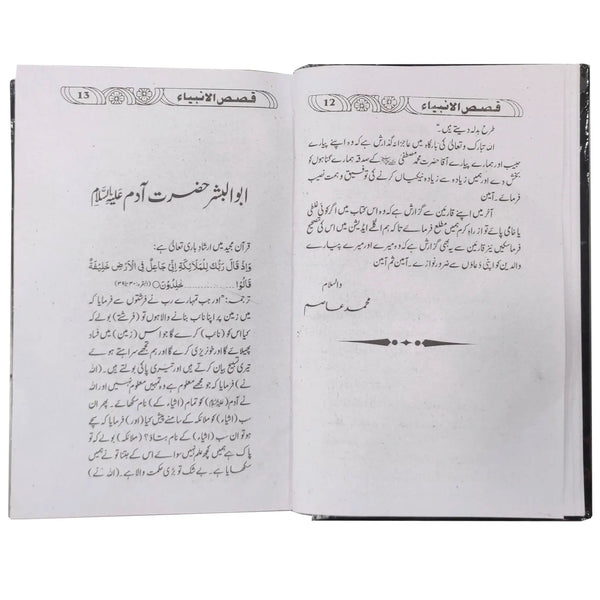 12 قصص الانبیاء
طرح بدلہ دیتے ہیں۔"
اللہ تبارک وتعالیٰ کی بارگاہ میں عاجزانہ گذارش ہے کہ وہ اپنے پیارے
حبیب اور ہمارے پیارے آقا حضرت محمد مصطفیٰ ﷺ کے صدقہ ہمارے گناہوں کو
بخش دے اور ہمیں زیادہ سے زیادہ نیکیاں کرنے کی توفیق و ہمت نصیب
فرمائے۔ آمین۔
آخر میں اپنے قارئین سے گزارش ہے کہ وہ اس کتاب میں اگر کوئی غلطی
یا خامی پائے تو از راہِ کرم ہمیں مطلع فرمائے تا کہ ہم اگلے ایڈیشن میں اس کی تصحیح
فرما سکیں نیز قارئین سے یہ بھی گزارش ہے کہ وہ میرے اور میرے پیارے
والدین کو اپنی دعاؤں سے ضرور نوازے۔ آمین ثم آمین
والسلام
محمد عاصم
13 قصص الانبیاء
ابو البشر حضرت آدم علیہ السلام
قرآن مجید میں ارشاد باری تعالیٰ ہے:
وَإِذْ قَالَ رَبُّكَ لِلْمَلَائِكَةِ إِنِّي جَاعِلٌ فِي الْأَرْضِ خَلِيفَةً
قَالُوا ........ خَلِدُونَ○ (البقرہ:۳۰ تا ۳۹)
ترجمہ: "اور جب تمہارے رب نے فرشتوں سے فرمایا کہ
میں زمین پر اپنا نائب بنانے والا ہوں تو (فرشتے) بولے کہ
کیا اس کو (نائب) کرے گا جو اس (زمین) میں فساد
پھیلائے گا اور خونریزی کرے گا اور ہم تجھے سراہتے ہوئے
تیری تسبیح بیان کرتے ہیں اور تیری پاکی بولتے ہیں۔ (اللہ
نے) فرمایا کہ جو مجھے معلوم ہے وہ تمہیں معلوم نہیں اور اللہ
نے آدم (علیہ السلام) کو تمام (اشیاء کے) نام سکھائے۔ پھر ان
سب (اشیاء) کو ملائکہ کے سامنے پیش کیا (اور) فرمایا کہ سچے
ہو تو ان سب (اشیاء) کے نام بتاؤ؟ (ملائکہ) بولے کہ تو
پاک ہے ہمیں کچھ علم نہیں سوائے اس کے جتنا تو نے ہمیں
سکھایا ہے۔ بے شک تو بڑی حکمت والا ہے۔ (اللہ نے)